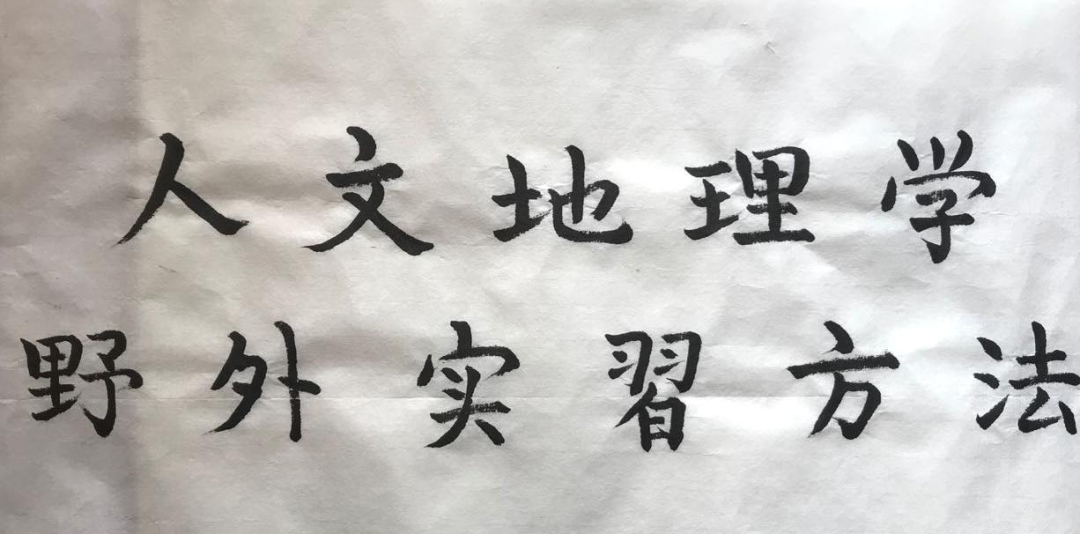 人文地理学
野外实習方法